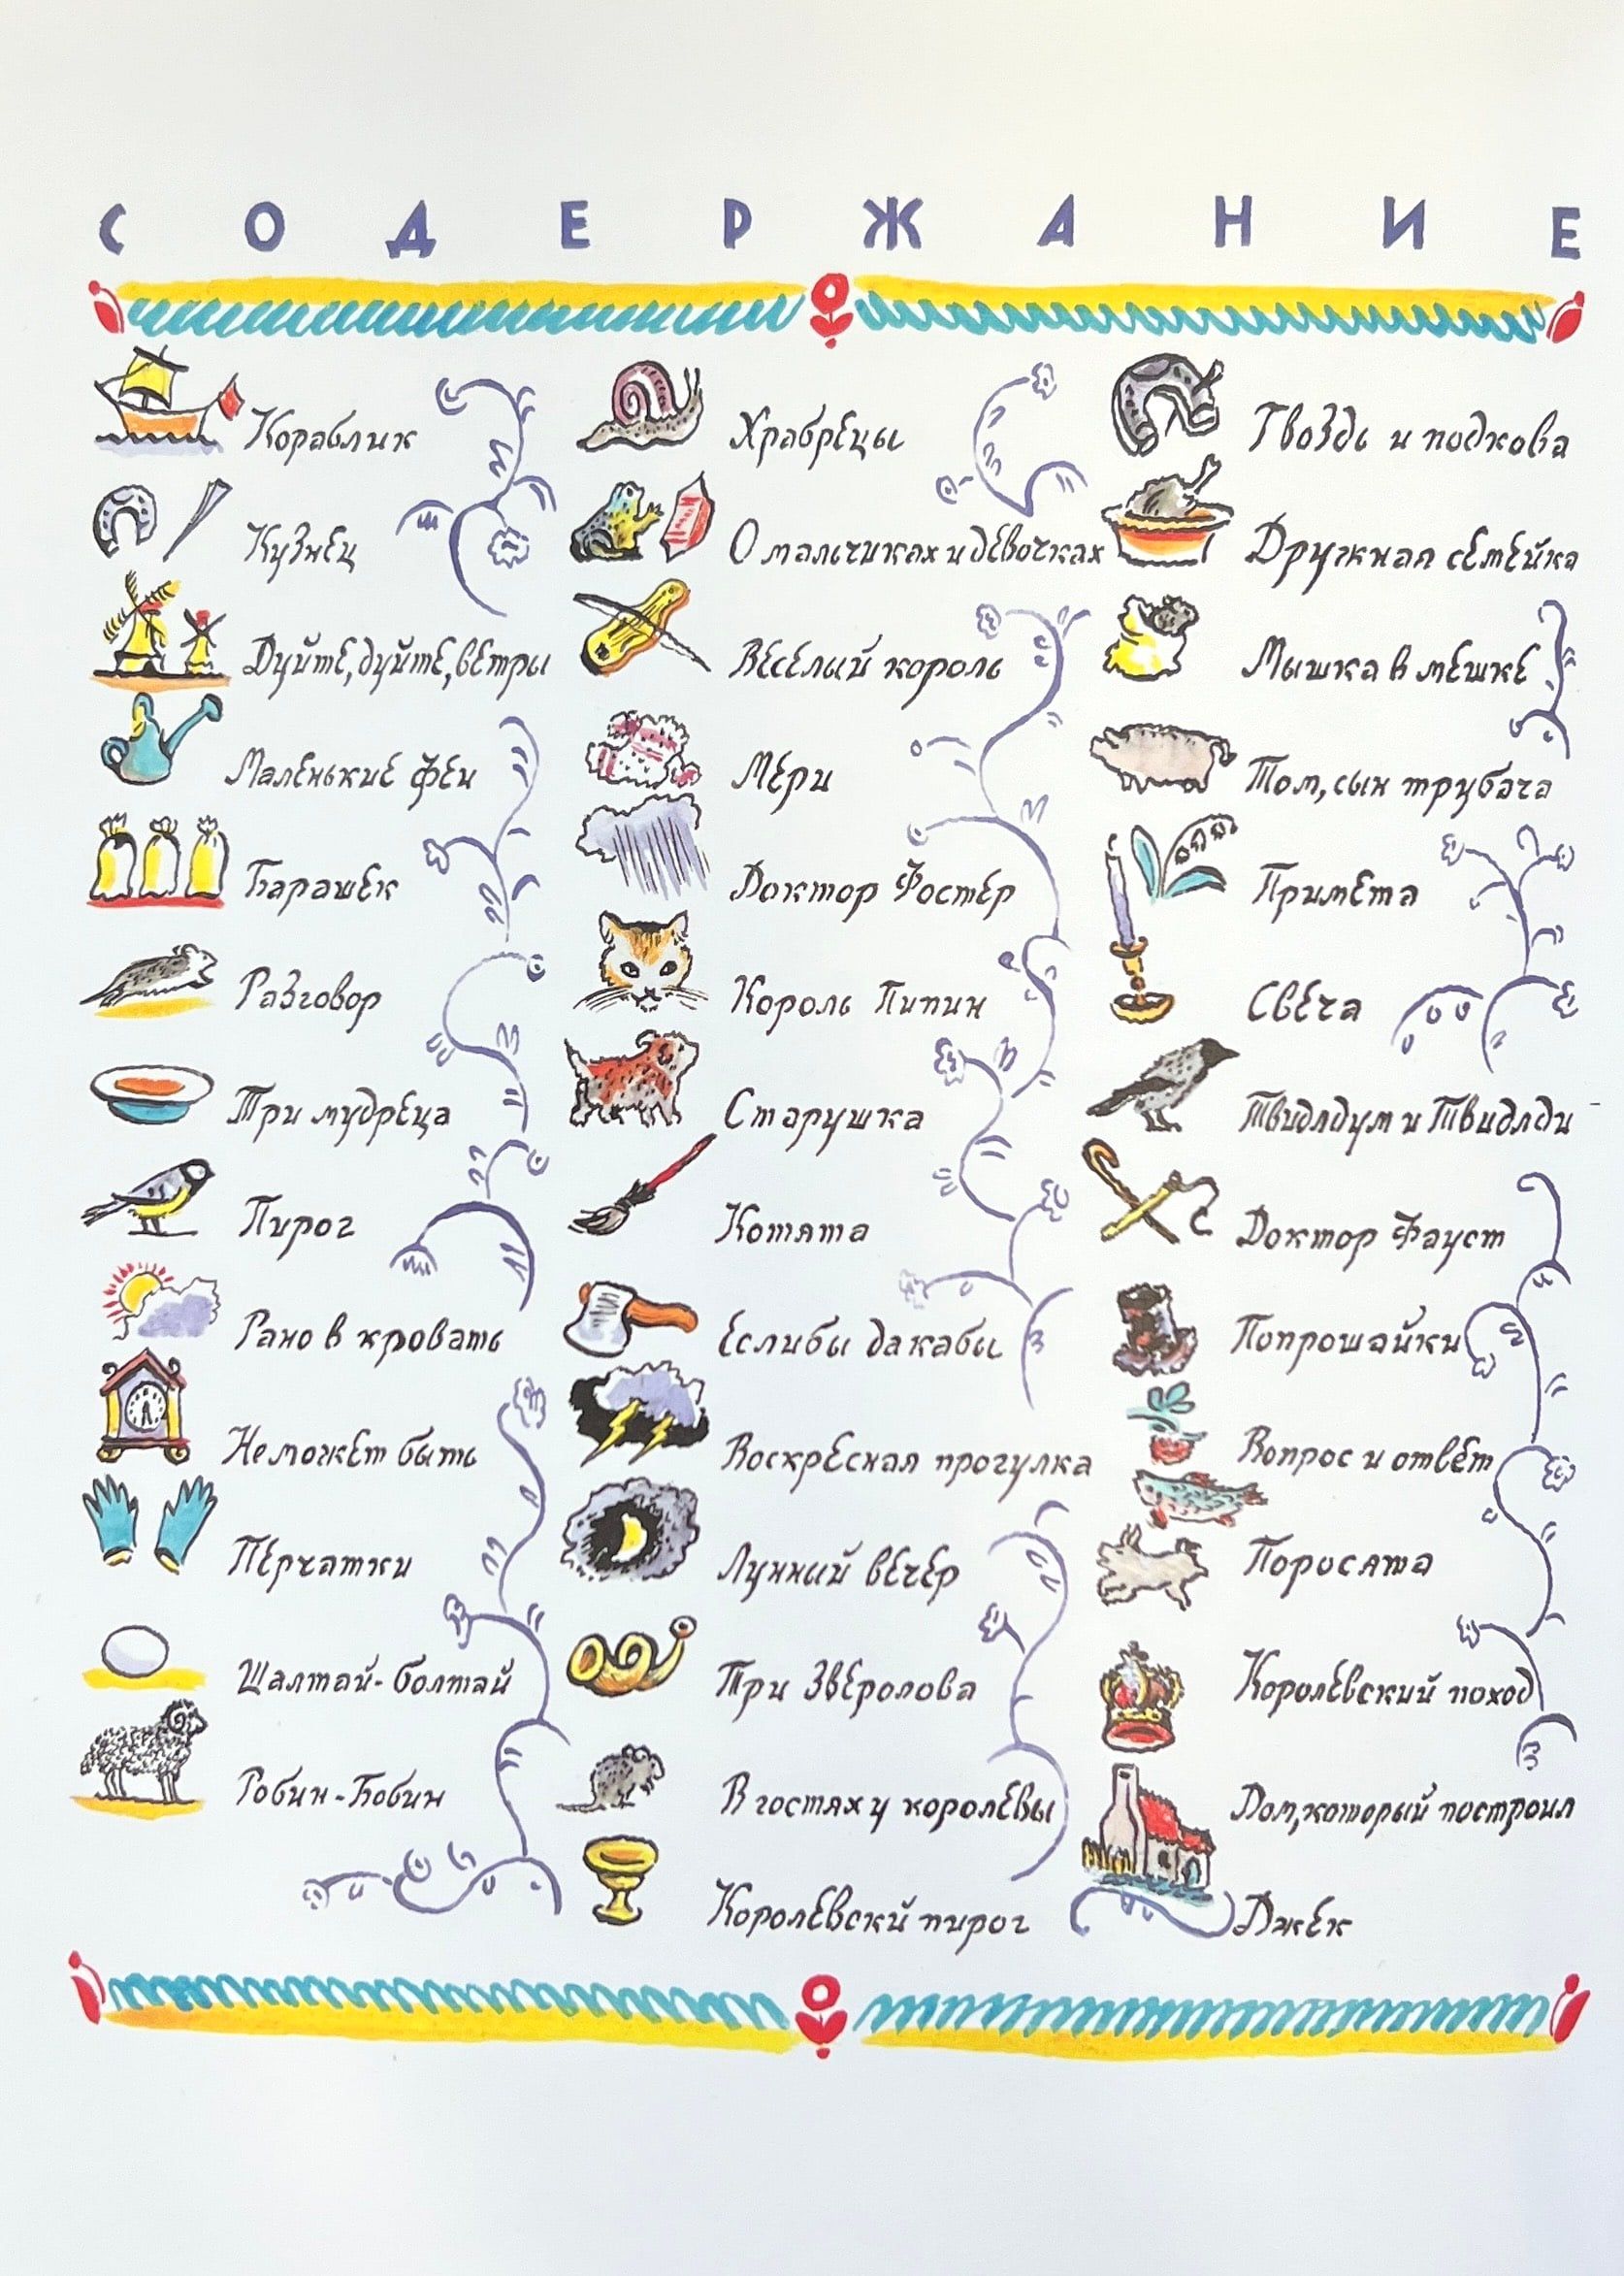 СОДЕРЖАНИЕ
Кораблик
Кузнец
Дуйте, дуйте, ветры
Маленькие феи
Барашек
Разговор
Три мудреца
Пирог
Рано в кровать
Не может быть
Перчатки
Шалтай-болтай
Робин-Бобин
Храбрецы
О мальчиках и девочках
Весёлый король
Мери
Доктор Фостер
Король Пипин
Старушка
Котята
Если бы да кабы
Воскресная прогулка
Лунный вечер
Три Зверолова
В гостях у королевы
Королевскй пирог
Гвоздь и подкова
Дружная семейка
Мышка в мешке
Том, сын трубача
Примета
Свеча
Твидлдум и Твидлди
Доктор Фауст
Попрошайки
Вопрос и ответ
Поросята
Королевский поход
Дом, который построил
Джек